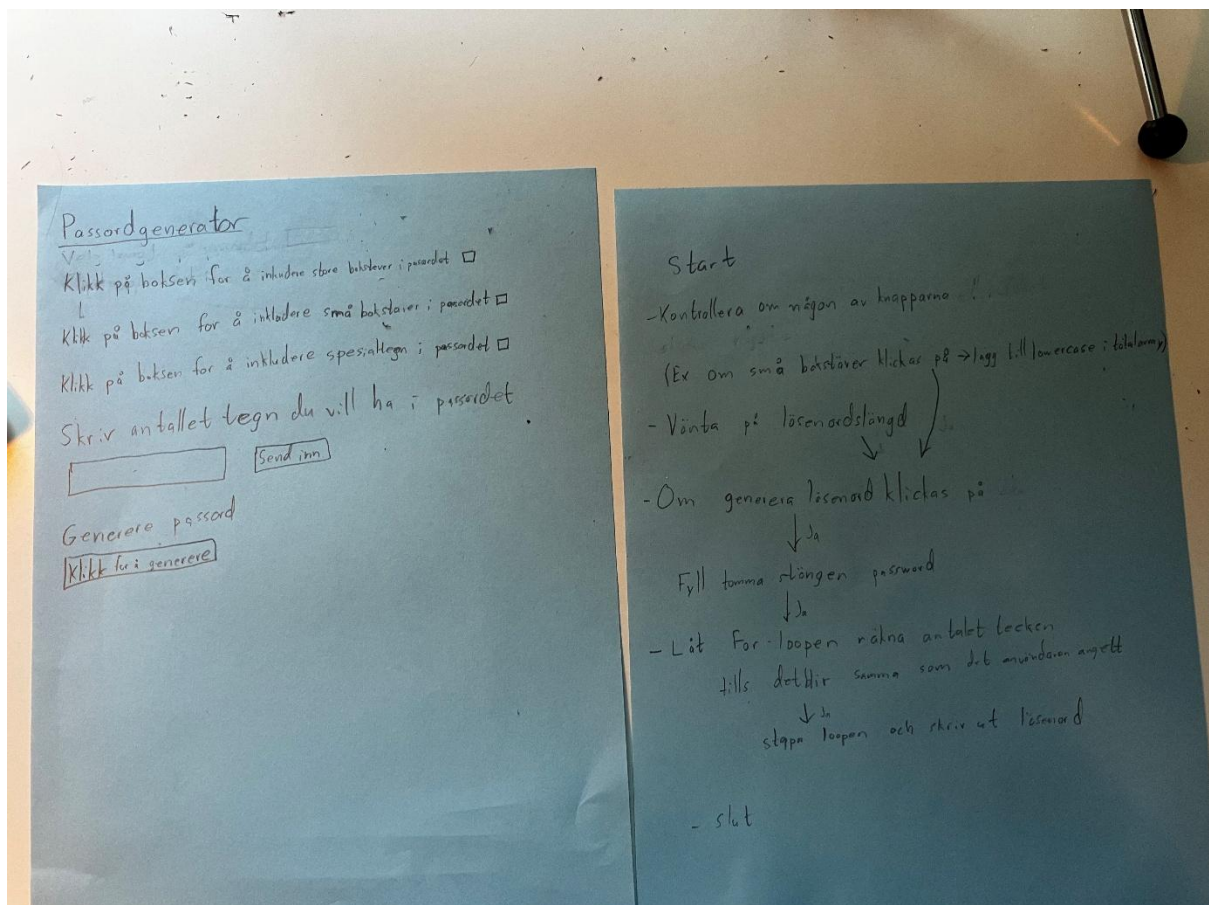 Passordgenerator
Klikk på boksen for å inkludere store bokstaver i passordet
Klikk på boksen for å inkludere små bokstaver i passordet
Klikk på boksen for å inkludere spesialtegn i passordet
Skriv antallet tegn du vill ha i passordet
Send inn
Generere passord
Klikk for å generere
Start
-Kontrollera om någon av knapparna
(Ex om små bokstäver klickas på → lägg till lowercase i totalarray)
- Vänta på lösenordslängd
- Om generera lösenord klickas på
Ja
Fyll tomma stängen password
Ja
- Låt For-loopen räkna antalet tecken
tills det blir samma som det användaren angett
Ja
stopa loopen och skriv ut lösenord
- slut